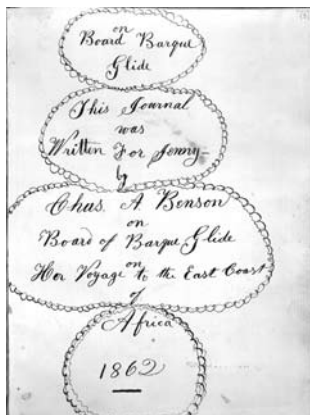 on
Board Barque
Glide
This Journal
was
Written For Jenny—
by
Chas. A Benson
on
Board of Barque Glide
on
Her Voyage to the East Coast
of
Africa
1862